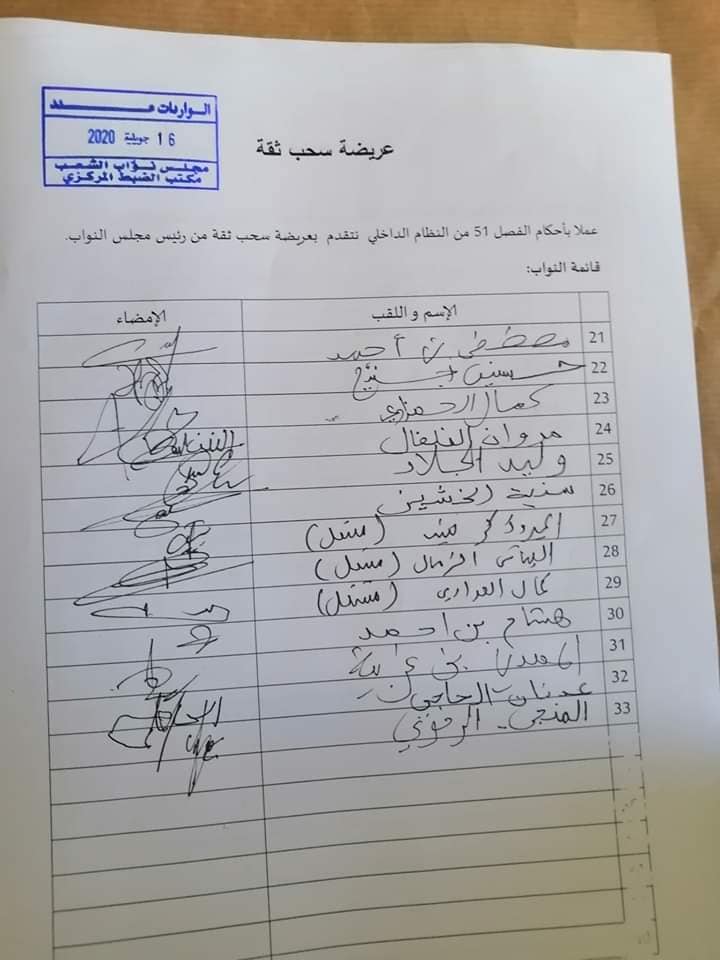 الواردات عـــــدد
16 جويلية 2020
مجلس نواب الشعب
مكتب الضبط المركزي
عريضة سحب ثقة
عملا بأحكام الفصل 51 من النظام الداخلي نتقدم بعريضة سحب ثقة من رئيس مجلس النواب.
قائمة النواب:
الإسم و اللقب الإمضاء
21 مصطفى بن أحمد
22 حسونة
23 كمال الحمزاوي
24 مروان الفلفال
25 وليد الجلاد
26 سنية الخشين
27 المبروك (مستقل)
28 العياشي الزمال (مستقل)
29 كمال العوادي (مستقل)
30 هشام بن احمد
31 المهدي بن غربية
32 عدنان الحاجي
33 المنجي الرحوي